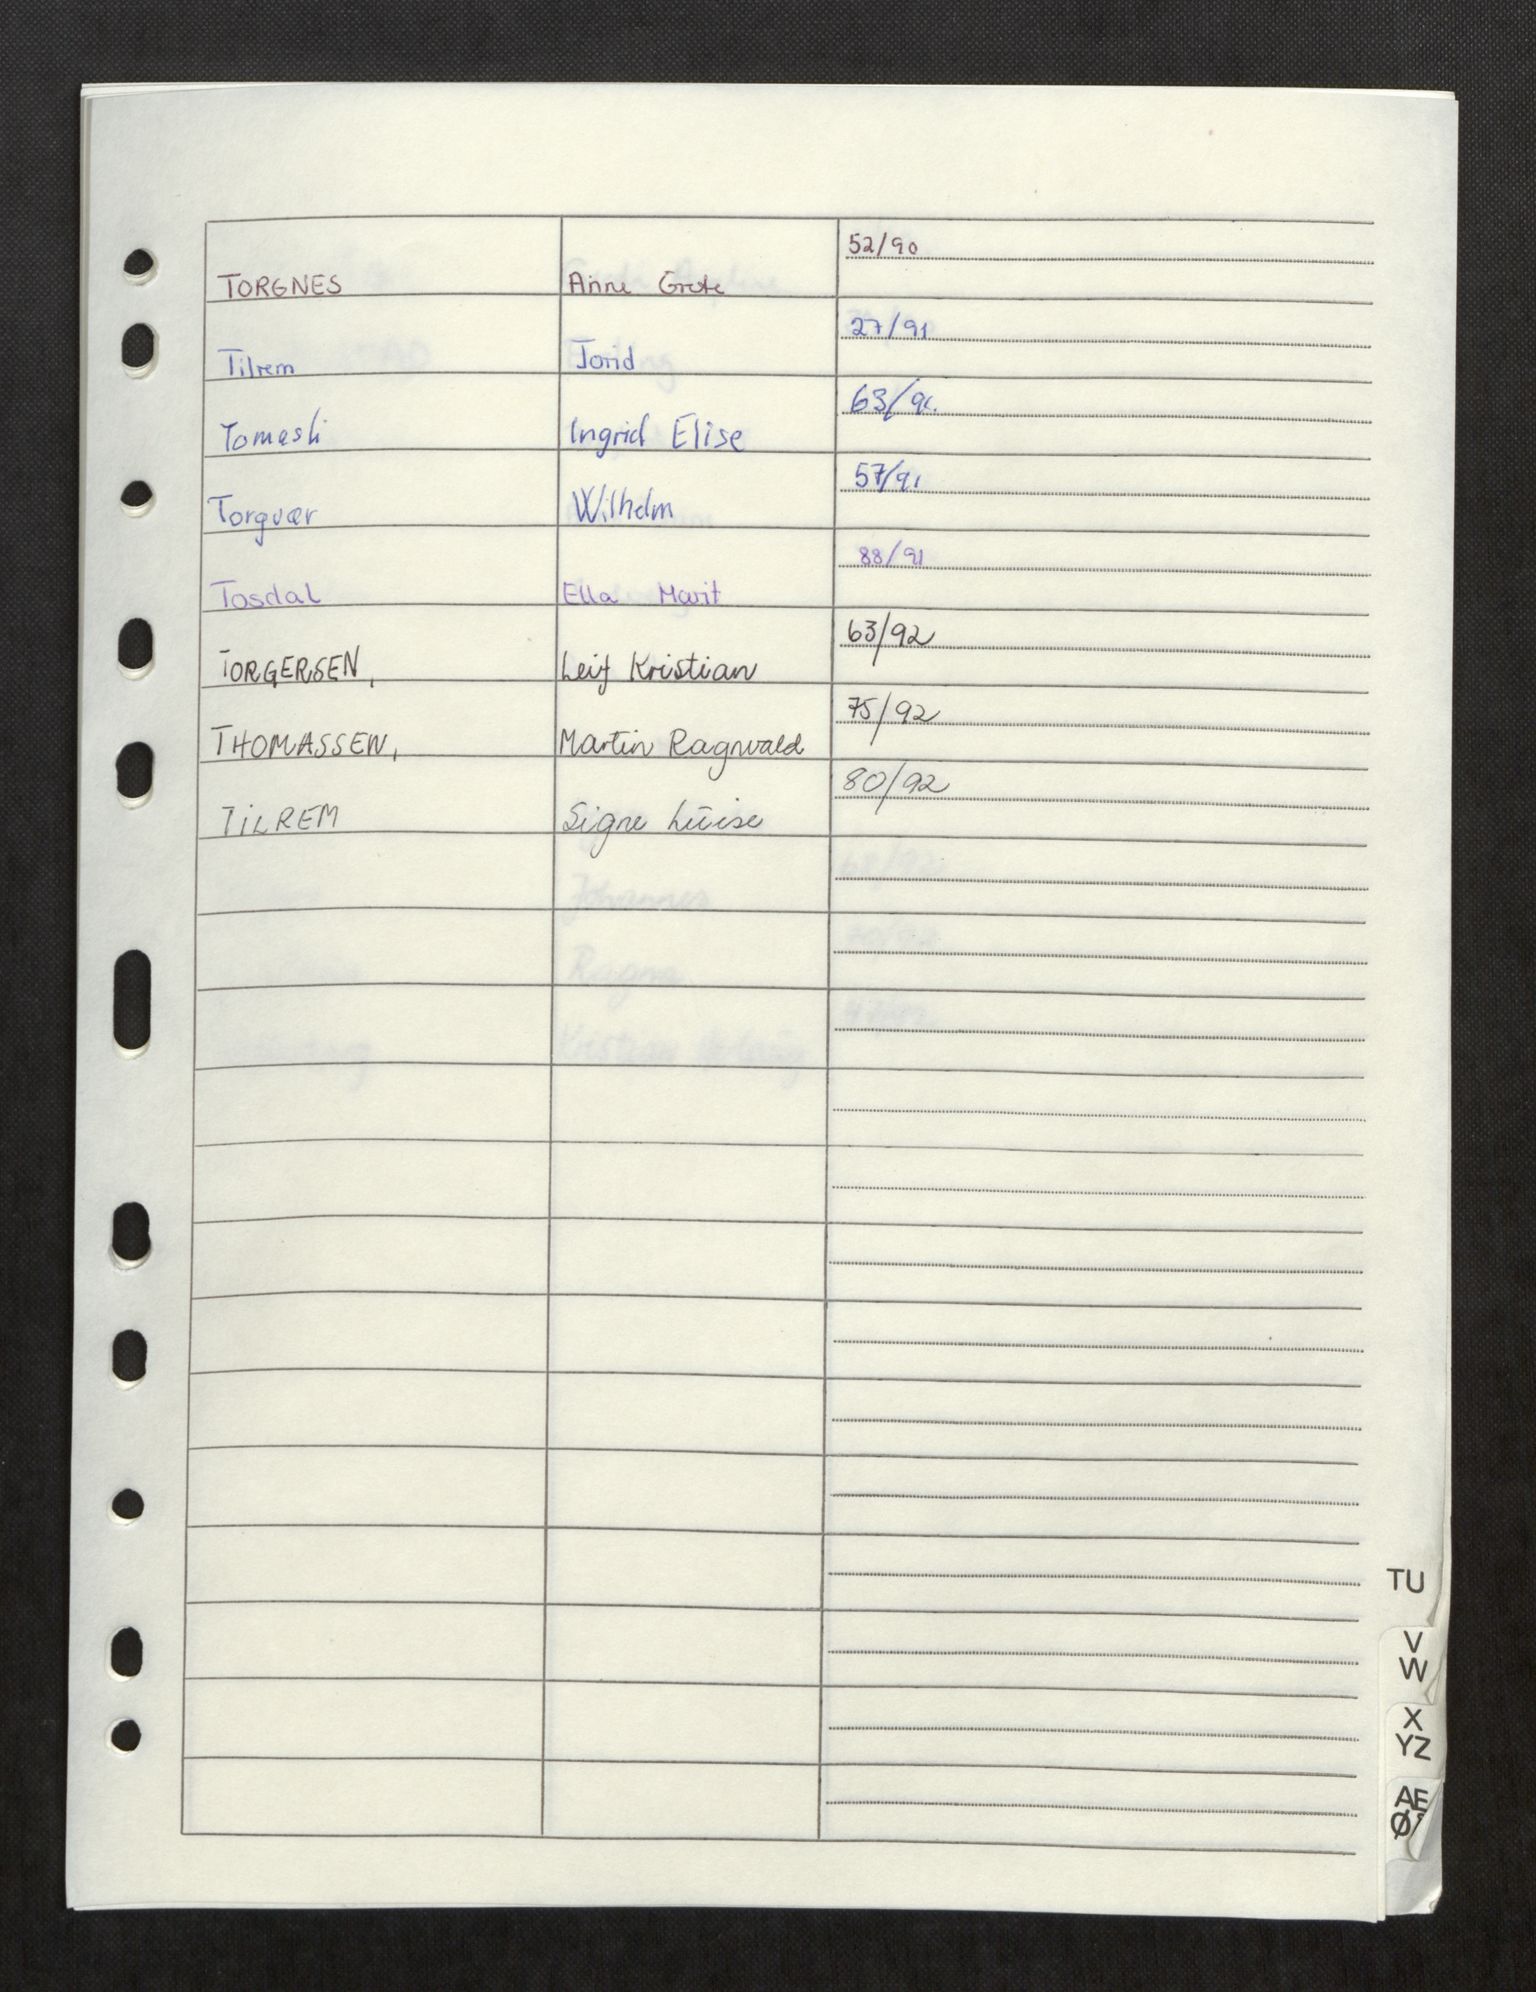 52/90
TORGNES Anne Grete
27/91
Tilrem Torid
63/91.
Tomasli Ingrid Elise
57/91
Torgvær Wilhelm
88/91
Tosdal Ella Marit
63/92
TORGERSEN, Leif Kristian
75/92
THOMASSEN, Martin Ragnvald
80/92
TILREM Signe Lūise
TU
V
W
X
YZ
AE
Ø